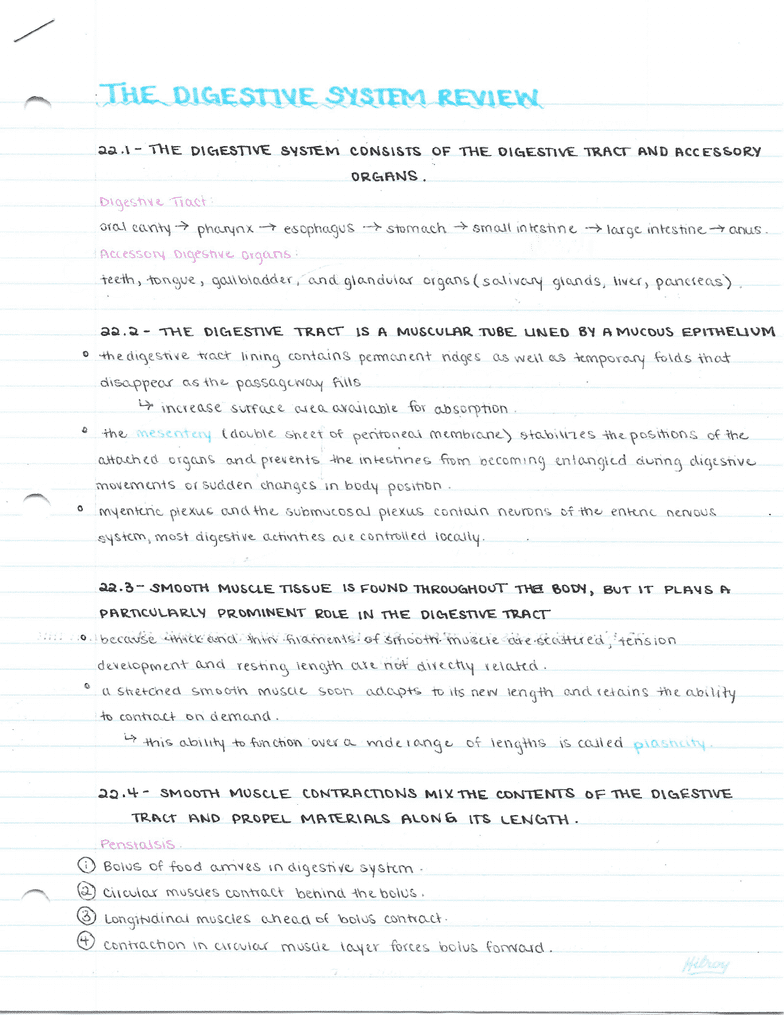 THE DIGESTIVE SYSTEM REVIEW
22.1 - THE DIGESTIVE SYSTEM CONSISTS OF THE DIGESTIVE TRACT AND ACCESSORY
ORGANS.
Digestive Tract:
oral cavity → pharynx → esophagus → stomach → small intestine → large intestine → anus.
Accessory Digestive organs:
teeth, tongue, gallbladder, and glandular organs (salivary glands, liver, pancreas).
22.2 - THE DIGESTIVE TRACT IS A MUSCULAR TUBE LINED BY A MUCOUS EPITHELIUM
° the digestive tract lining contains permanent ridges as well as temporary folds that
disappear as the passageway fills
↳ increase surface area available for absorption.
° the mesentery (double sheet of peritoneal membrane) stabilizes the positions of the
attached organs and prevents the intestines from becoming entangled during digestive
movements or sudden changes in body position.
° myenteric plexus and the submucosal plexus contain neurons of the enteric nervous
system, most digestive activities are controlled locally.
22.3 - SMOOTH MUSCLE TISSUE IS FOUND THROUGHOUT THE BODY, BUT IT PLAYS A
PARTICULARLY PROMINENT ROLE IN THE DIGESTIVE TRACT
° because thick and thin filaments of smooth muscle are scattered, tension
development and resting length are not directly related.
° a stretched smooth muscle soon adapts to its new length and retains the ability
to contract on demand.
↳ this ability to function over a wide range of lengths is called plasticity.
22.4 - SMOOTH MUSCLE CONTRACTIONS MIX THE CONTENTS OF THE DIGESTIVE
TRACT AND PROPEL MATERIALS ALONG ITS LENGTH.
Peristalsis.
① Bolus of food arrives in digestive system.
② Circular muscles contract behind the bolus.
③ Longitudinal muscles ahead of bolus contract.
④ contraction in circular muscle layer forces bolus forward.
Hilroy